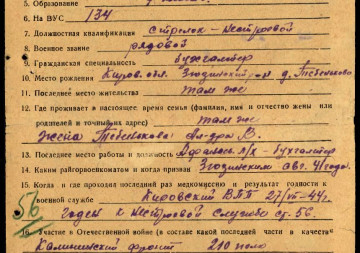 5. Образование
6. На ВУС 134
7. Должностная квалификация стрелок-нестроевой
8. Военное звание рядовой
9. Гражданская специальность бухгалтер
10. Место рождения Киров. обл. д.
11. Последнее место жительства там же
12. Где проживает в настоящее время семья (фамилия, имя и отчество жены или
родителей и точный адрес) там же
жена В.
13. Последнее место работы и должность бухгалтер
14. Каким райгорвоенкоматом и когда призван авг. 41 года
15. Когда и где проходил последний раз медкомиссию и результат годности к
военной службе Кировский 27/VII-44г.
56 годен к нестроевой службе ст. 56.
16. Участие в Отечественной войне (в составе какой последней части и качестве)
Калининский фронт 210